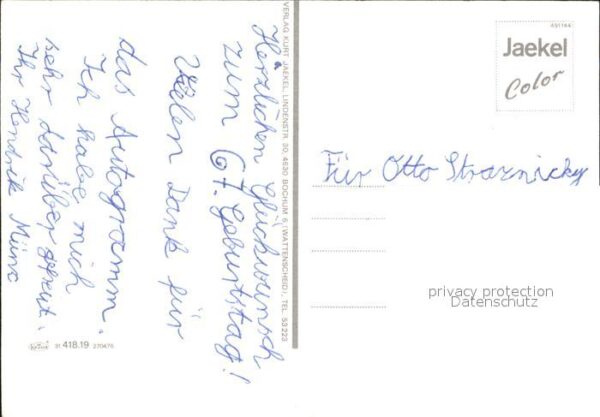 Herzlichen Glückwunsch
zum 67. Geburtstag!
Vielen Dank für
das Autogramm.
Ich habe mich
sehr darüber gefreut.
Ihr Hendrik
VERLAG KURT JAEKEL, LINDENSTR. 30, 4630 BOCHUM 6 (WATTENSCHEID), TEL. 53 223
91 418.19 270476
A91164
Jaekel
Color
Für Otto Straznicky
privacy protection
Datenschutz